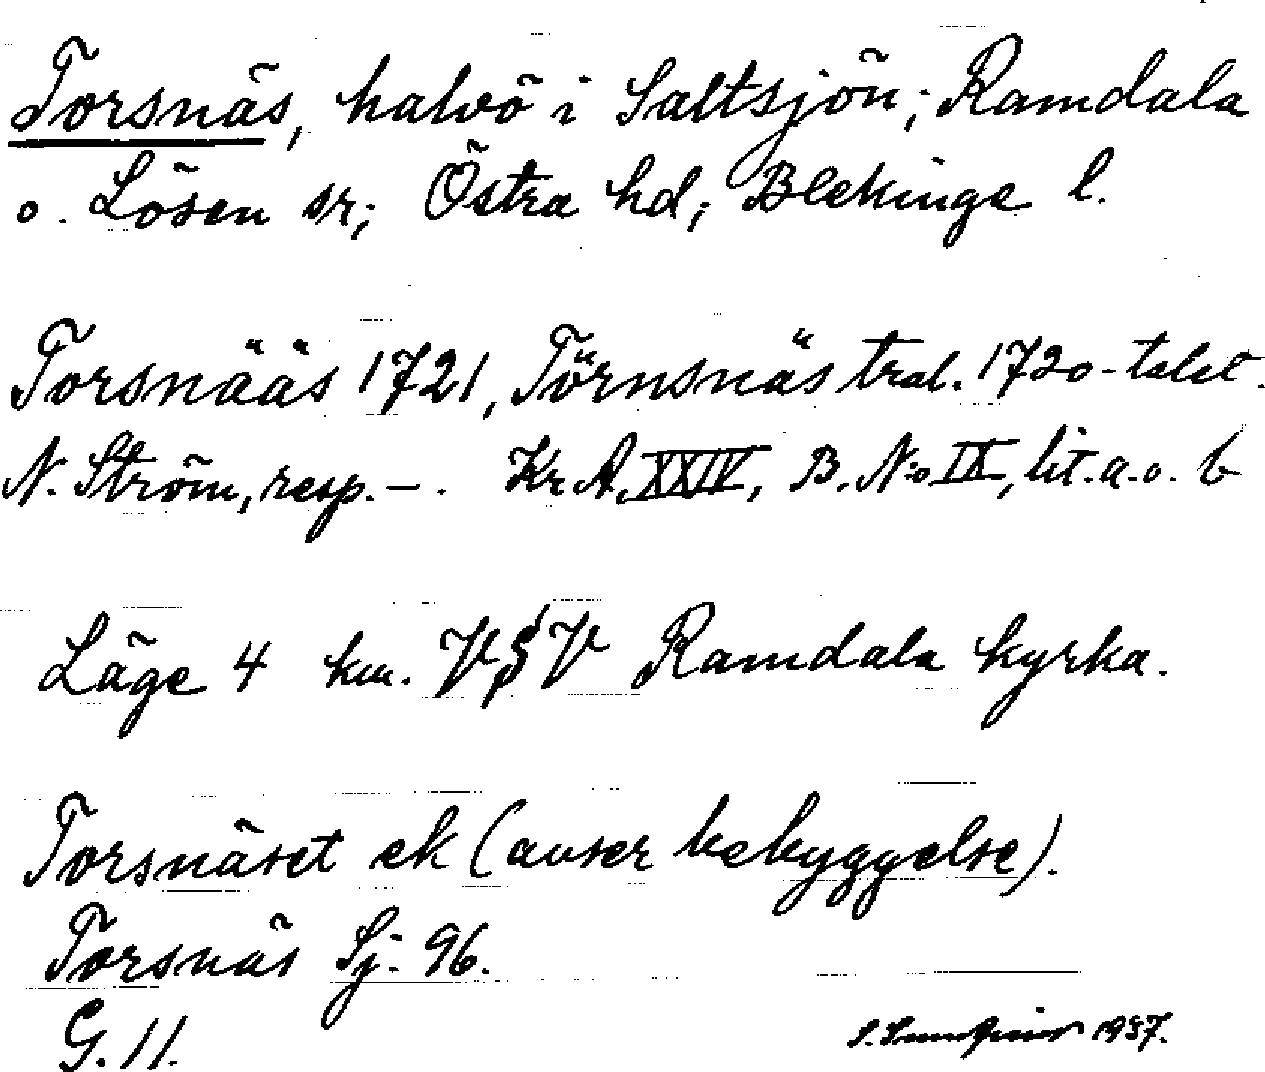 Torsnäs, halvö i Saltsjön; Ramdala
o. Lösen sr; Östra hd; Blekinge l.
Torsnääs 1721, Törnsnäs tral. 1720-talet.
N. Ström, resp. - . Kr. A. XXIV, B. No IX, lit. a. o. b
Läge 4 km. VSV Ramdala kyrka.
Torsnäset ek (avser bebyggelse).
Torsnäs Sj. 96.
G. 11.
1937.